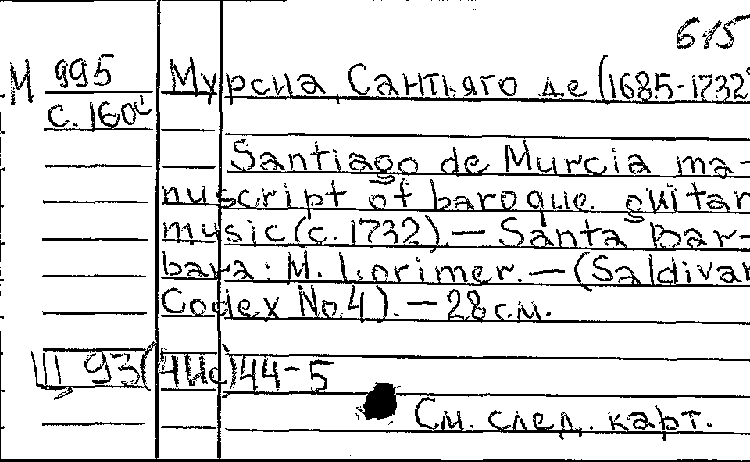 615
М 995 Мурсиа, Сантьяго де (1685-1732
с. 160
Santiago de Murcia ma-
nuscript of baroque guitar
music (c. 1732). — Santa Bar-
bara: M. Lorimer. — (Saldivar
Codex No. 4). — 28 см.
93(4Ис)44-5
См. след. карт.